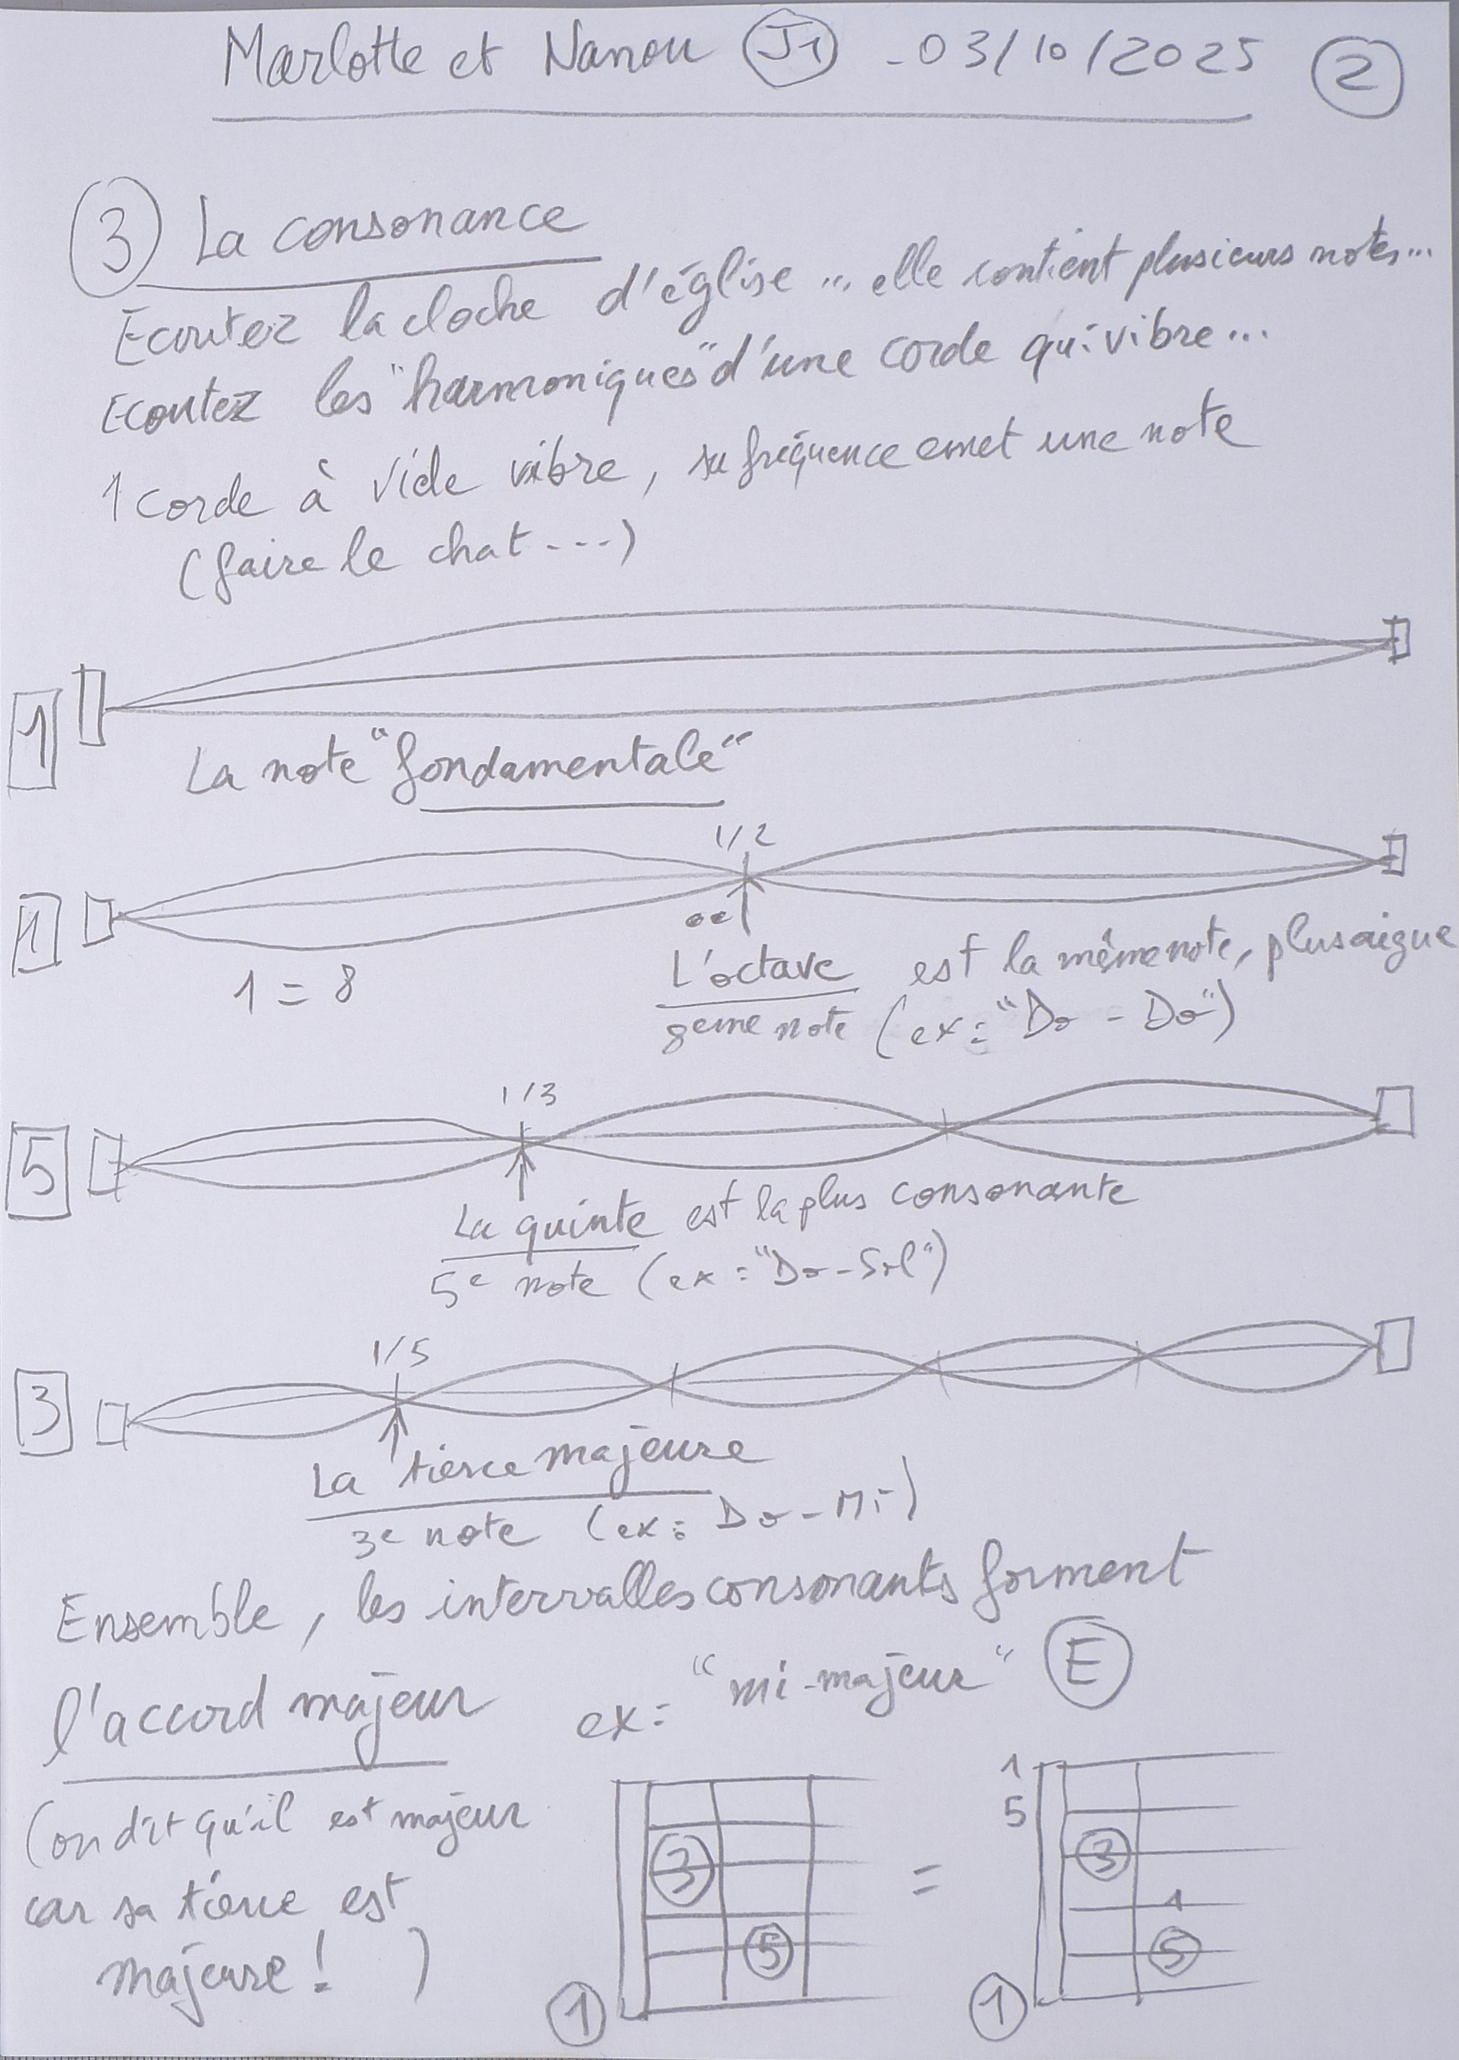 Marlotte et Nanou J1 - 03/10/2025 2
3 La consonance
Ecoutez la cloche d'église ... elle contient plusieurs notes...
Ecoutez les "harmoniques" d'une corde qui vibre...
1 corde à vide vibre, sa fréquence emet une note
(faire le chat ---)
1
La note "fondamentale"
1/2
1
oe
1 = 8
L'octave est la même note, plus aigue
8eme note (ex: "Do - Do")
1/3
5
La quinte est la plus consonante
5e note (ex: "Do-Sol")
1/5
3
La tierce majeure
3e note (ex: Do-Mi)
Ensemble, les intervalles consonants forment
l'accord majeur ex: "mi-majeur" E
(on dit qu'il est majeur
car sa tierce est
majeure! )
3
5
1
=
1
5
3
1
5
1